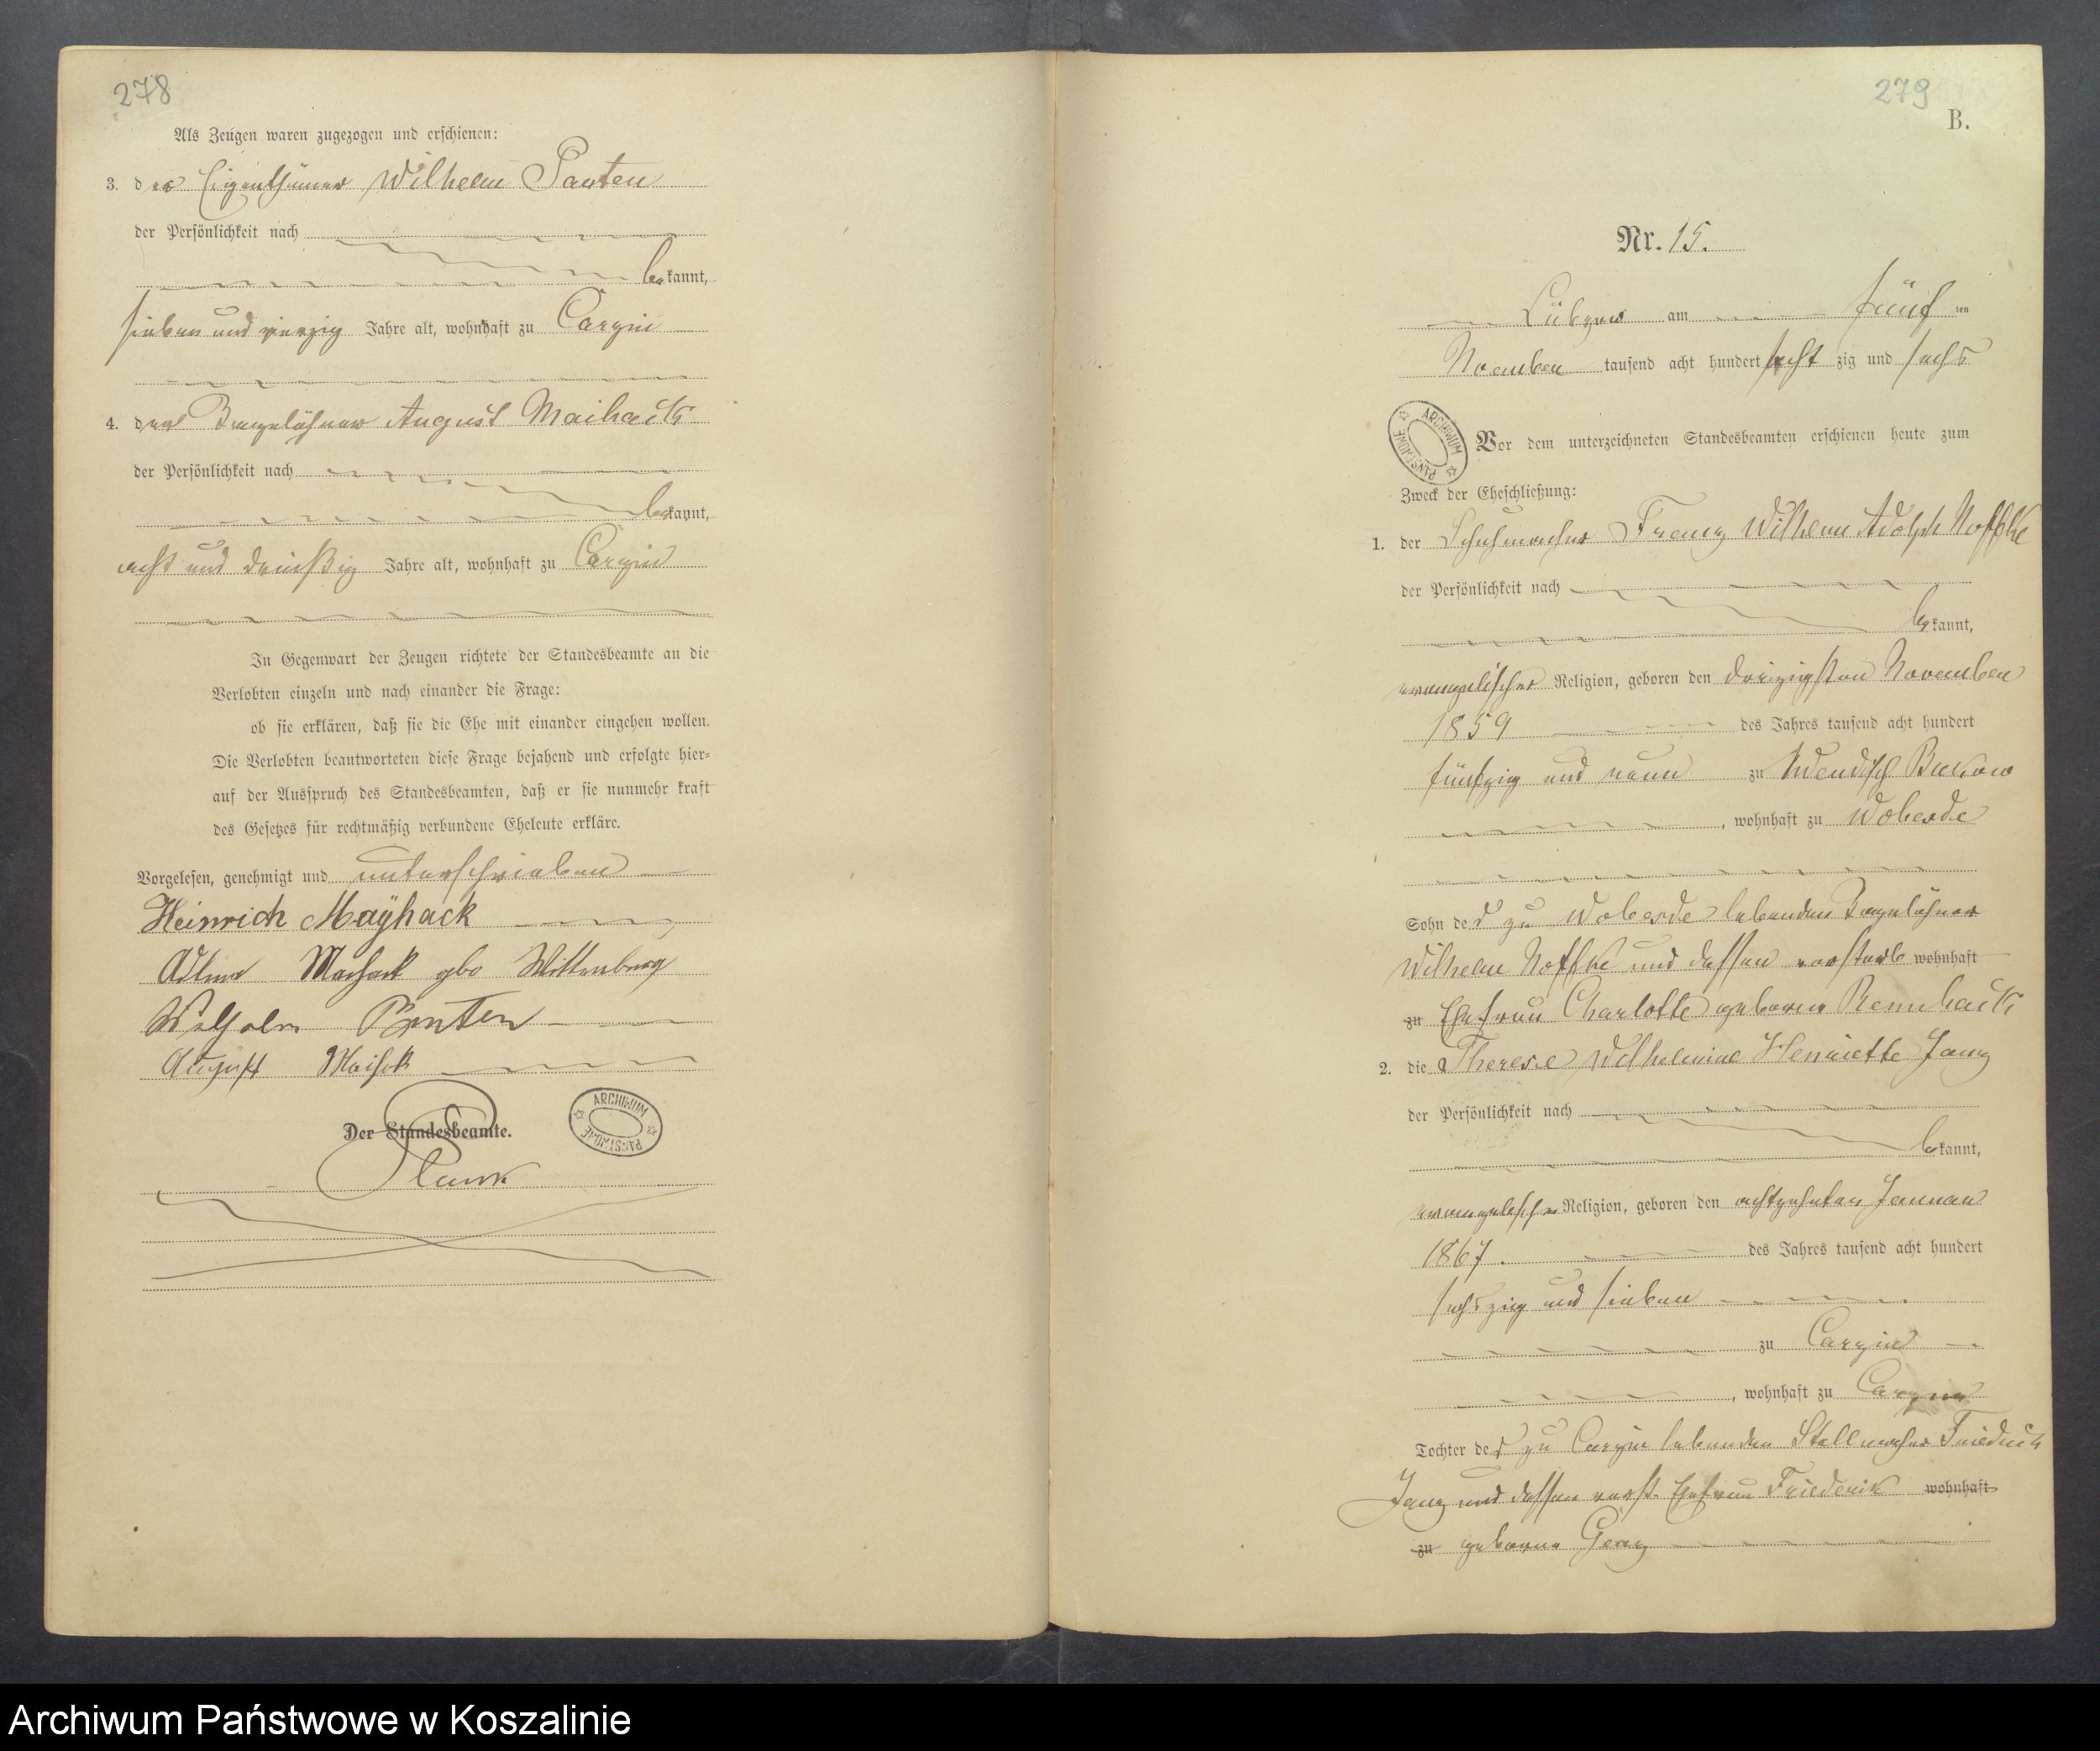 278
Als Zeugen waren zugezogen und erschienen:
3. der Eigenthümer Wilhelm Panten
der Persönlichkeit nach
bekannt,
sieben und vierzig Jahre alt, wohnhaft zu Carzin
4. der Tagelöhner August Maihack
der Persönlichkeit nach
bekannt,
acht und dreißig Jahre alt, wohnhaft zu Carzin
In Gegenwart der Zeugen richtete der Standesbeamte an die
Verlobten einzeln und nach einander die Frage:
ob sie erklären, daß sie die Ehe mit einander eingehen wollen.
Die Verlobten beantworteten diese Frage bejahend und erfolgte hier=
auf der Ausspruch des Standesbeamten, daß er sie nunmehr kraft
des Gesetzes für rechtmäßig verbundene Eheleute erkläre.
Vorgelesen, genehmigt und unterschrieben
Heinrich Mayhack
Maihack gbo Wittenberg
Wilhelm Panten
August
Der Standesbeamte.
ARCHIWUM PAŃSTWOWE
279
B.
Nr. 15.
Lübzow am fünf ten
November tausend acht hundert acht zig und sechs
ARCHIWUM PAŃSTWOWE
Vor dem unterzeichneten Standesbeamten erschienen heute zum
Zweck der Eheschließung:
1. der Schuhmacher Franz Wilhelm Adolph Noffke
der Persönlichkeit nach
bekannt,
evangelischer Religion, geboren den dreizigsten November
1859 des Jahres tausend acht hundert
fünfzig und neun zu Wendisch Buckow
, wohnhaft zu Wobesde
Sohn des zu Wobesde lebenden Tagelöhner
Wilhelm Noffke und dessen verstorb wohnhaft
zu Ehefrau Charlotte geborne Remhack
2. die Therese Wilhelmine Henriette Janz
der Persönlichkeit nach
bekannt,
evangelischer Religion, geboren den achtzehnten Januar
1867. des Jahres tausend acht hundert
sechszig und sieben
zu Carzin
, wohnhaft zu Carzin
Tochter des zu Carzin lebenden Stellmacher Friedrich
Janz und dessen verst. Ehefrau Friederik wohnhaft
zu geborne
Archiwum Państwowe w Koszalinie